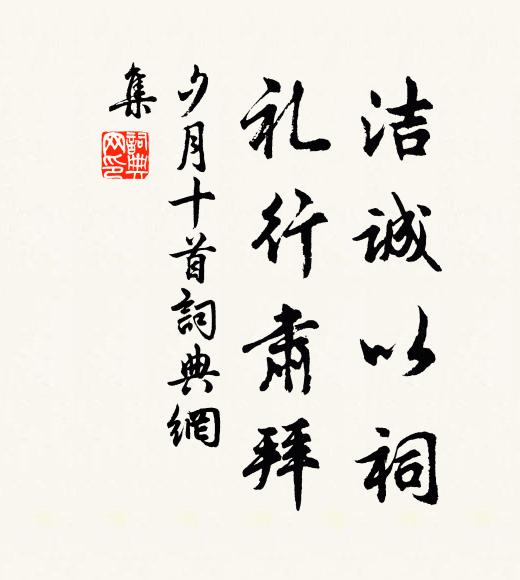 洁誠以祠
礼行肅拜
夕月十首詞典網
集
詞典
网印